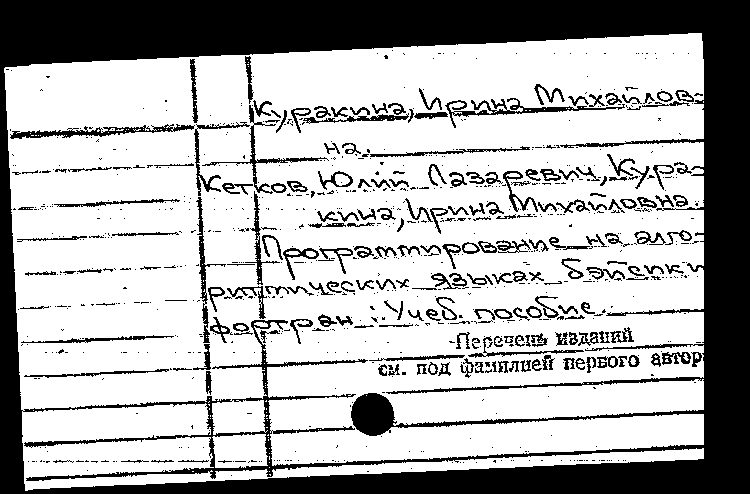 Куракина, Ирина Михайлов-
на.
Кетков, Юлий Лазаревич, Кура-
кина, Ирина Михайловна.
Программирование на алго-
ритмических языках бэйсик и
фортран : Учеб. пособие.
Перечень изданий
см. под фамилией первого автора